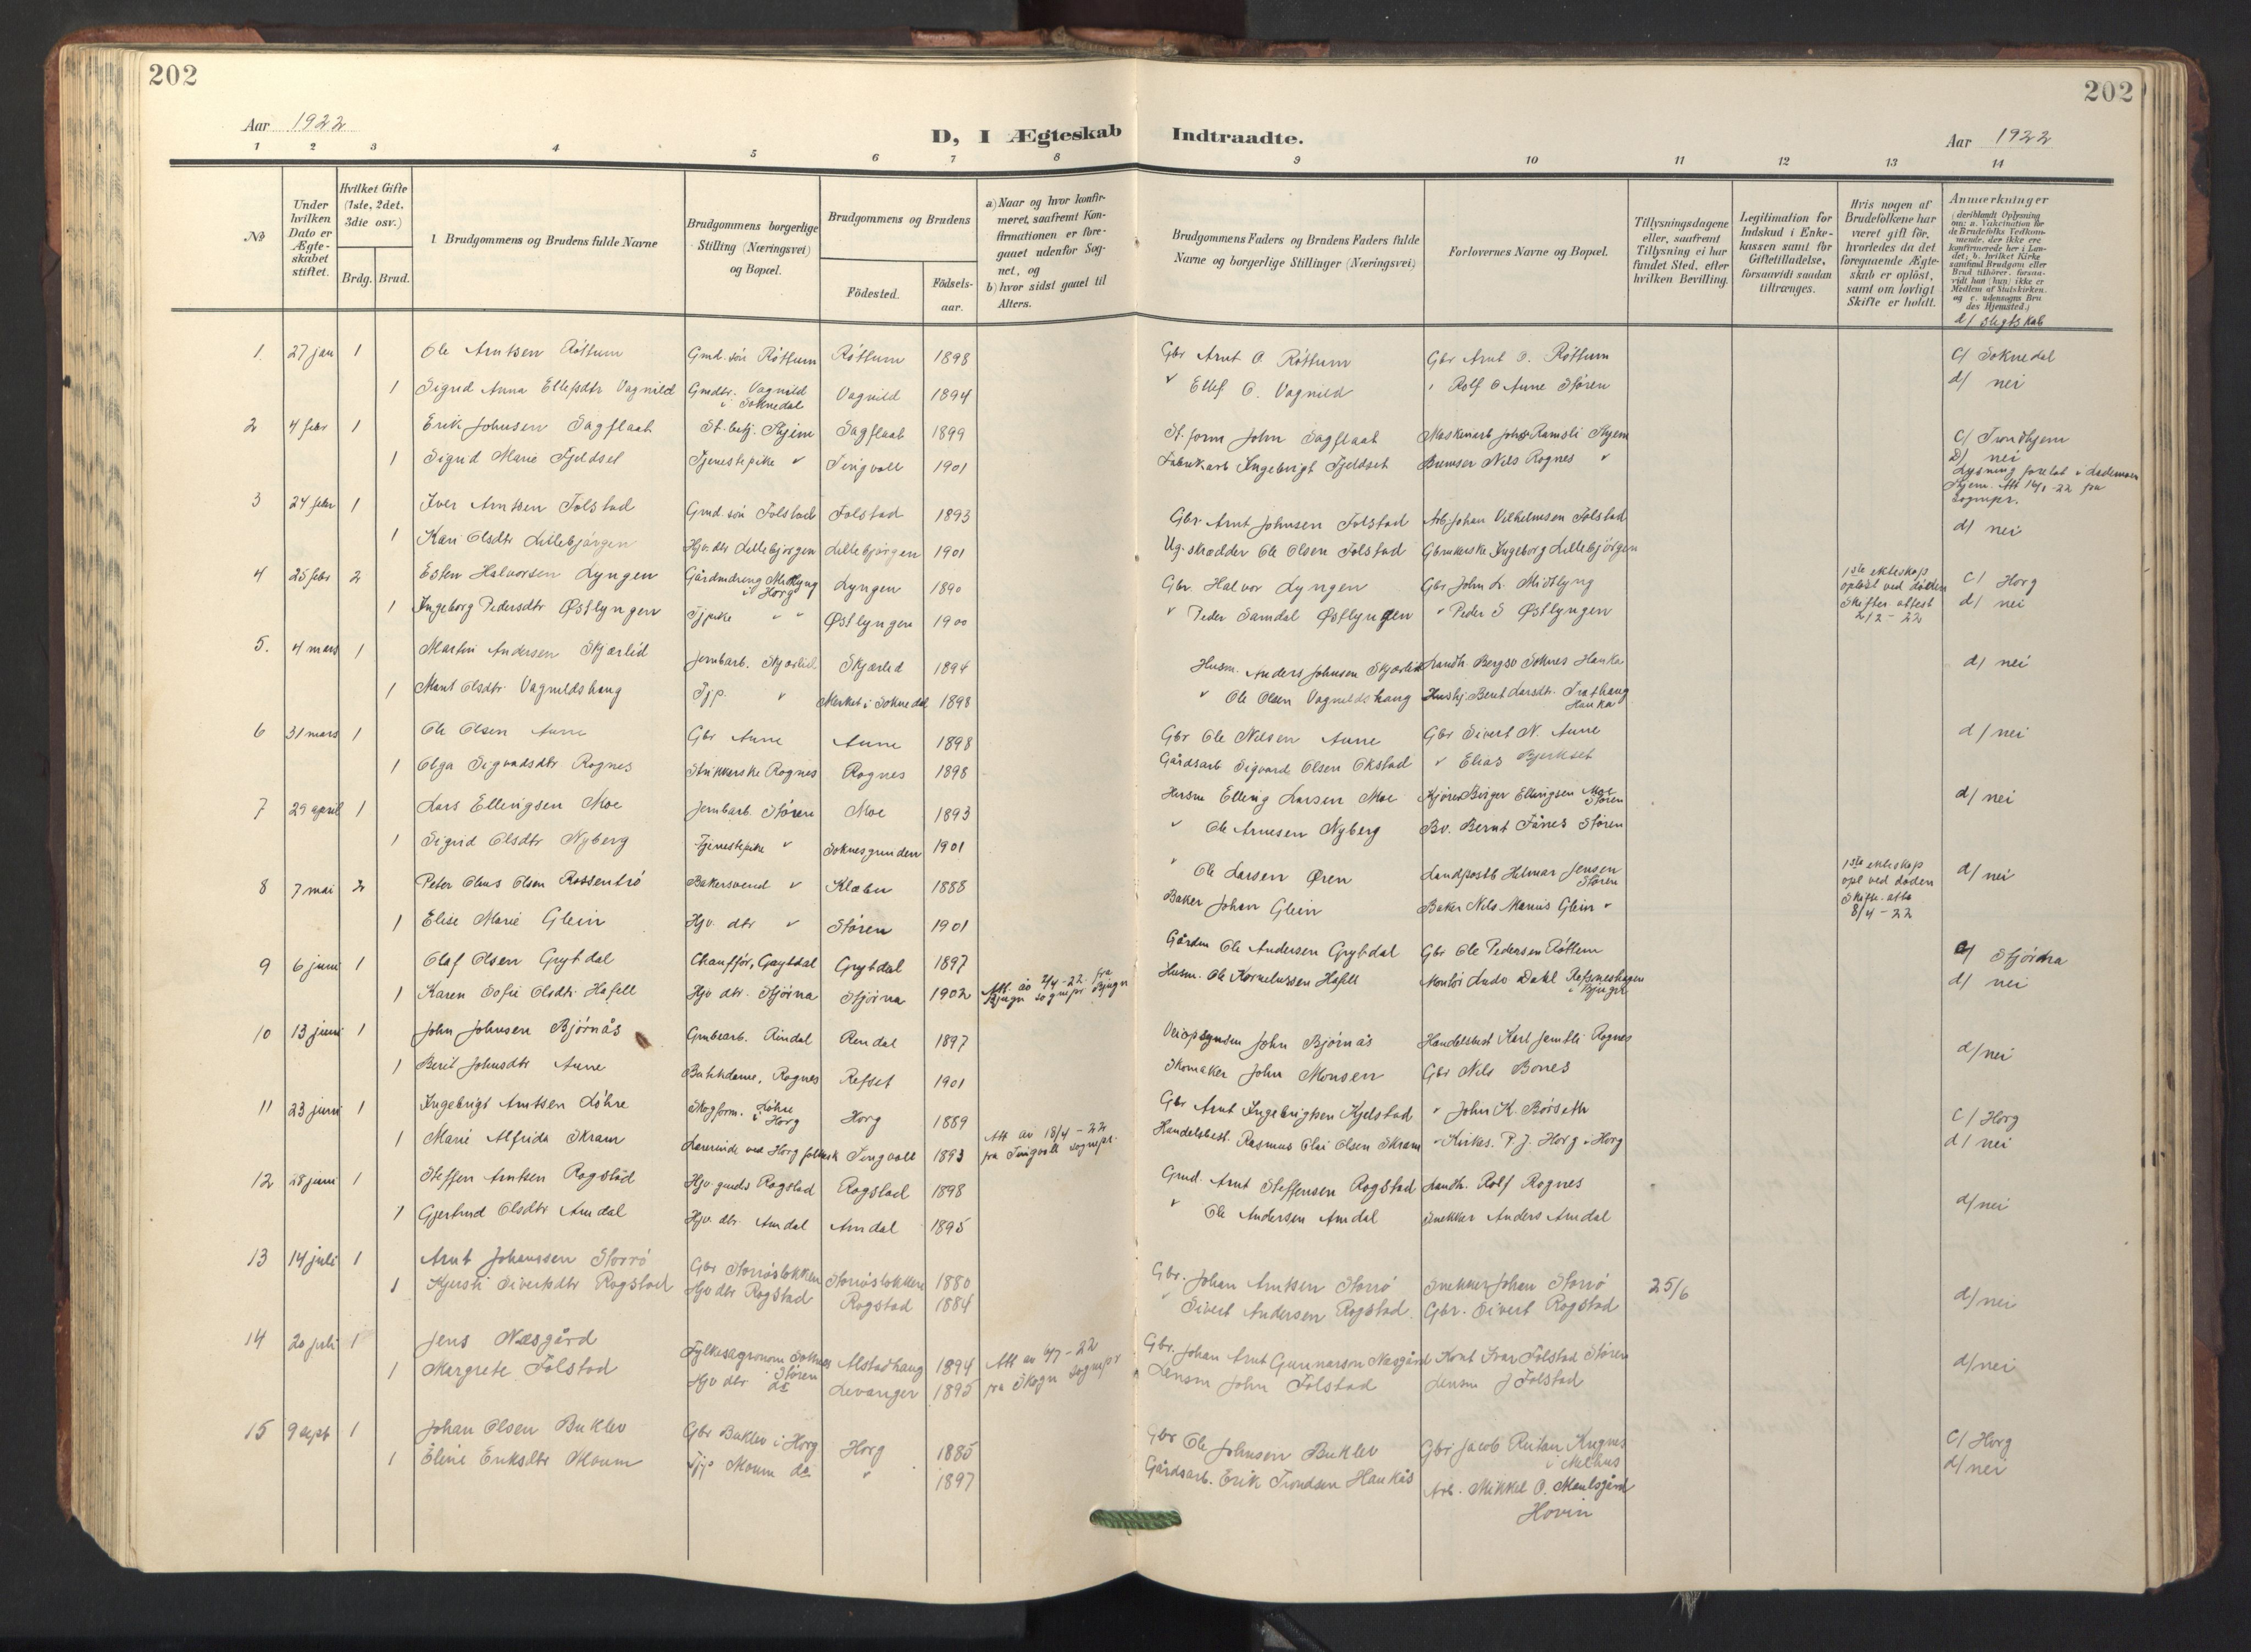 202
202
Aar 1922
D, I Ægteskab Indtraadte.
Aar 1922
1 2 3 4 5 6 7 8 9 10 11 12 13 14
No
Under hvilken Dato er Ægteskabet stiftet.
Hvilket Gifte (1ste, 2det, 3die osv.)
Brdg. Brud.
Brudgommens og Brudens fulde Navne
Brudgommens borgerlige Stilling (Næringsvei) og Bopæl.
Brudgommens og Brudens
Födested.
Födselsaar.
a) Naar og hvor konfirmeret, saafremt Konfirmationen er foregaaet udenfor Sognet, og
b) hvor sidst gaaet til Alters.
Brudgommens Faders og Brudens Faders fulde Navne og borgerlige Stillinger (Næringsvei)
Forlovernes Navne og Bopæl.
Tillysningsdagene eller, saafremt Tillysning ei har fundet Sted, efter hvilken Bevilling.
Legitimation for Indskud i Enkekassen samt for Giftetilladelse, forsaavidt saadan tiltrænges.
Hvis nogen af Brudefolkene har været gift för, hvorledes da det foregaaende Ægteskab er oplöst, samt om lovligt Skifte er holdt.
Anmærkninger (deriblandt Oplysning om: a. Vakcination for de Brudefolks Vedkommende, der ikke ere konfirmerede her i Landet; b. hvilket Kirkesamfund Brudgom eller Brud tilhörer, forsaavidt han (hun) ikke er Medlem af Statskirken, og c. udensogns Brudes Hjemsted.)
d/ slegtskab
1. 27 jan 1 Ole Arntsen Röttum Gmd. sön Röttum Röttum 1898 Gbr Arnt O. Röttum Gbr Arnt O. Röttum C/ Soknedal
1 Sigrid Anna Ellefsdtr Vagnild Gmdtr. Vagnild i Soknedal Vagnild 1894 " Ellef O. Vagnild " Rolf O Aune Stören d/ nei
2 4 febr 1 Erik Johnsen Sagflaat St.betj. Thjem Sagflaat 1899 St.form John Sagflaat Maskinarb John Ramsli Thjem C/ Trondhjem
1 Sigrid Marie Fjeldset Tjenestepike " Tingvoll 1901 Fabrikarb Ingebrigt Fjeldset Bremser Nils Rognes " D/ nei
Lysning foretat i Lademoen Thjem. Att 16/1-22 fra sognepr.
3 24 febr 1 Iver Arntsen Folstad Gmd. sön Folstad Folstad 1893 Gbr. Arnt Johnsen Folstad Arb. Johan Vilhelmsen Folstad d/ nei
1 Kari Olsdtr Lillebjörgen Hjv. dtr Lillebjörgen Lillebjörgen 1901 Ug. skrædder Ole Olsen Folstad Gbrukerske Ingeborg Lillebjörgen
4 25 febr 2 Esten Halvorsen Lyngen Gårdmdreng Midtlyng i Horg Lyngen 1890 Gbr. Halvor Lyngen Gbr John L. Midtlyng 1ste ekteskap oplöst ved döden Skifter. attest 2/2-22 C/ Horg
1 Ingeborg Pedersdtr Østlyngen Tjpike " " Østlyngen 1900 " Peder Samdal Østlyngen " Peder S Østlyngen d/ nei
5. 4 mars 1 Martin Andersen Skjærlid Jernbarb. Skjærlid Skjærlid 1894 Husm. Anders Johnsen Skjærlid Landh. Bergsv Soknes Hauka d/ nei
1 Marit Olsdtr. Vagnildshaug Tjp. " Merket i Soknedal 1898 " Ole Olsen Vagnildshaug Hushj. Berit Larsdtr. Trøthaug Hauka
6 31 mars 1 Ole Olsen Aune Gbr Aune Aune 1898 Gbr Ole Nilsen Aune Gbr Sivert N. Aune d/ nei
1 Olga Sigvadsdtr Rognes Strikkerske Rognes Rognes 1898 Gårdsarb Sigvard Olsen Okstad " Elias Bjerkset
7 29 april 1 Lars Ellingsen Moe Jernbarb. Stören Moe 1893 Husm Elling Larsen Moe Kjörer Birger Ellingsen Moe Stören d/ nei
1 Sigrid Olsdtr Nyberg Tjenestepike " Soknesgrunden 1901 " Ole Arnesen Nyberg Bv. Bernt Fånes Stören
8 7 mai 2 Peter Olaus Olsen Rossentrö Bakersvend " Klæbu 1888 " Ole Larsen Øren Landpostb Hilmar Jensen Stören 1ste ekteskap opl ved döden Skifte. atte 8/4-22 d/ nei
1 Elise Marie Glein Hjv. dtr " Stören 1901 Baker Johan Glein Baker Nils Marius Glein "
9 6 juni 1 Olaf Olsen Grytdal Chaufför, Grytdal Grytdal 1897 Gårdm Ole Andersen Grytdal Gbr Ole Pedersen Röttem C/ Stjörna
1 Karen Sofie Olsdtr. Hofell Hjv dtr. Stjörna Stjörna 1902 Att. av 2/4-22. fra Bjugn sognepr Bjugn Husm. Ole Kornelussen Hofell Montör Ludv Dahl Refsneshagen i Bjugn d/ nei
10 13 juni 1 John Johnsen Bjørnås Grubearb. Rindal Rindal 1897 Veiopsynsm John Bjørnås Handelsbest Karl Jamtli Rognes d/ nei
1 Berit Johnsdtr Aune Butikdame, Rognes Refset 1901 Skomaker John Monsen Gbr Nils Bones
11 23 juni 1 Ingebrigt Arntsen Löhre Skogform. Löhre i Horg Horg 1889 Gbr Arnt Ingebrigtsen Kjelstad " John K. Börseth C/ Horg
1 Marie Alfrida Skram Lærerinde ved Horg folkesk Tingvoll 1893 Att av 18/4-22 fra Tingvoll sognepr. Handelsbest. Rasmus Olai Olsen Skram " Kirkes. P. J. Horg i Horg d/ nei
12 28 juni 1 Steffen Arntsen Rogstad Hjv. gmds Rogstad Rogstad 1898 Gmd. Arnt Steffensen Rogstad Landh. Rolf Rognes d/ nei
1 Gjertrud Olsdtr Amdal Hjv. dtr. Amdal Amdal 1895 " Ole Andersen Amdal Snekker Anders Amdal
13 14 juli 1 Arnt Johansen Storrö Gbr Storröslökken Storröslökken 1880 Gbr. Johan Arntsen Storrö Snekker Johan Storrö 25/6 d/ nei
1 Kjersti Sivertsdtr Rogstad Hjv dtr Rogstad Rogstad 1884 " Sivert Andersen Rogstad. Gbr. Sivert Rogstad
14 20 juli 1 Jens Næsgård Fylkesagronom Soknes i Stören Alstadhaug 1894 Att av 6/7-22 fra Skogn sognepr Gbr. Johan Arnt Gunnarson Næsgård Kont Ivar Folstad Stören d/ nei
1 Margrete Folstad Hjv dtr do Levanger 1895 Lensm John Folstad Lensm J Folstad
15 9 sept 1 Johan Olsen Buklev Gbr Buklev i Horg Horg 1885 Gbr Ole Johnsen Buklev Gbr Jacob Reitan Krignes i Melhus C/ Horg
1 Eline Eriksdtr Moum Tjp Moum do " 1897 Gårdsarb. Erik Trondsen Haukås Arb. Mikkel O. Maulsgård Hovin d/ nei